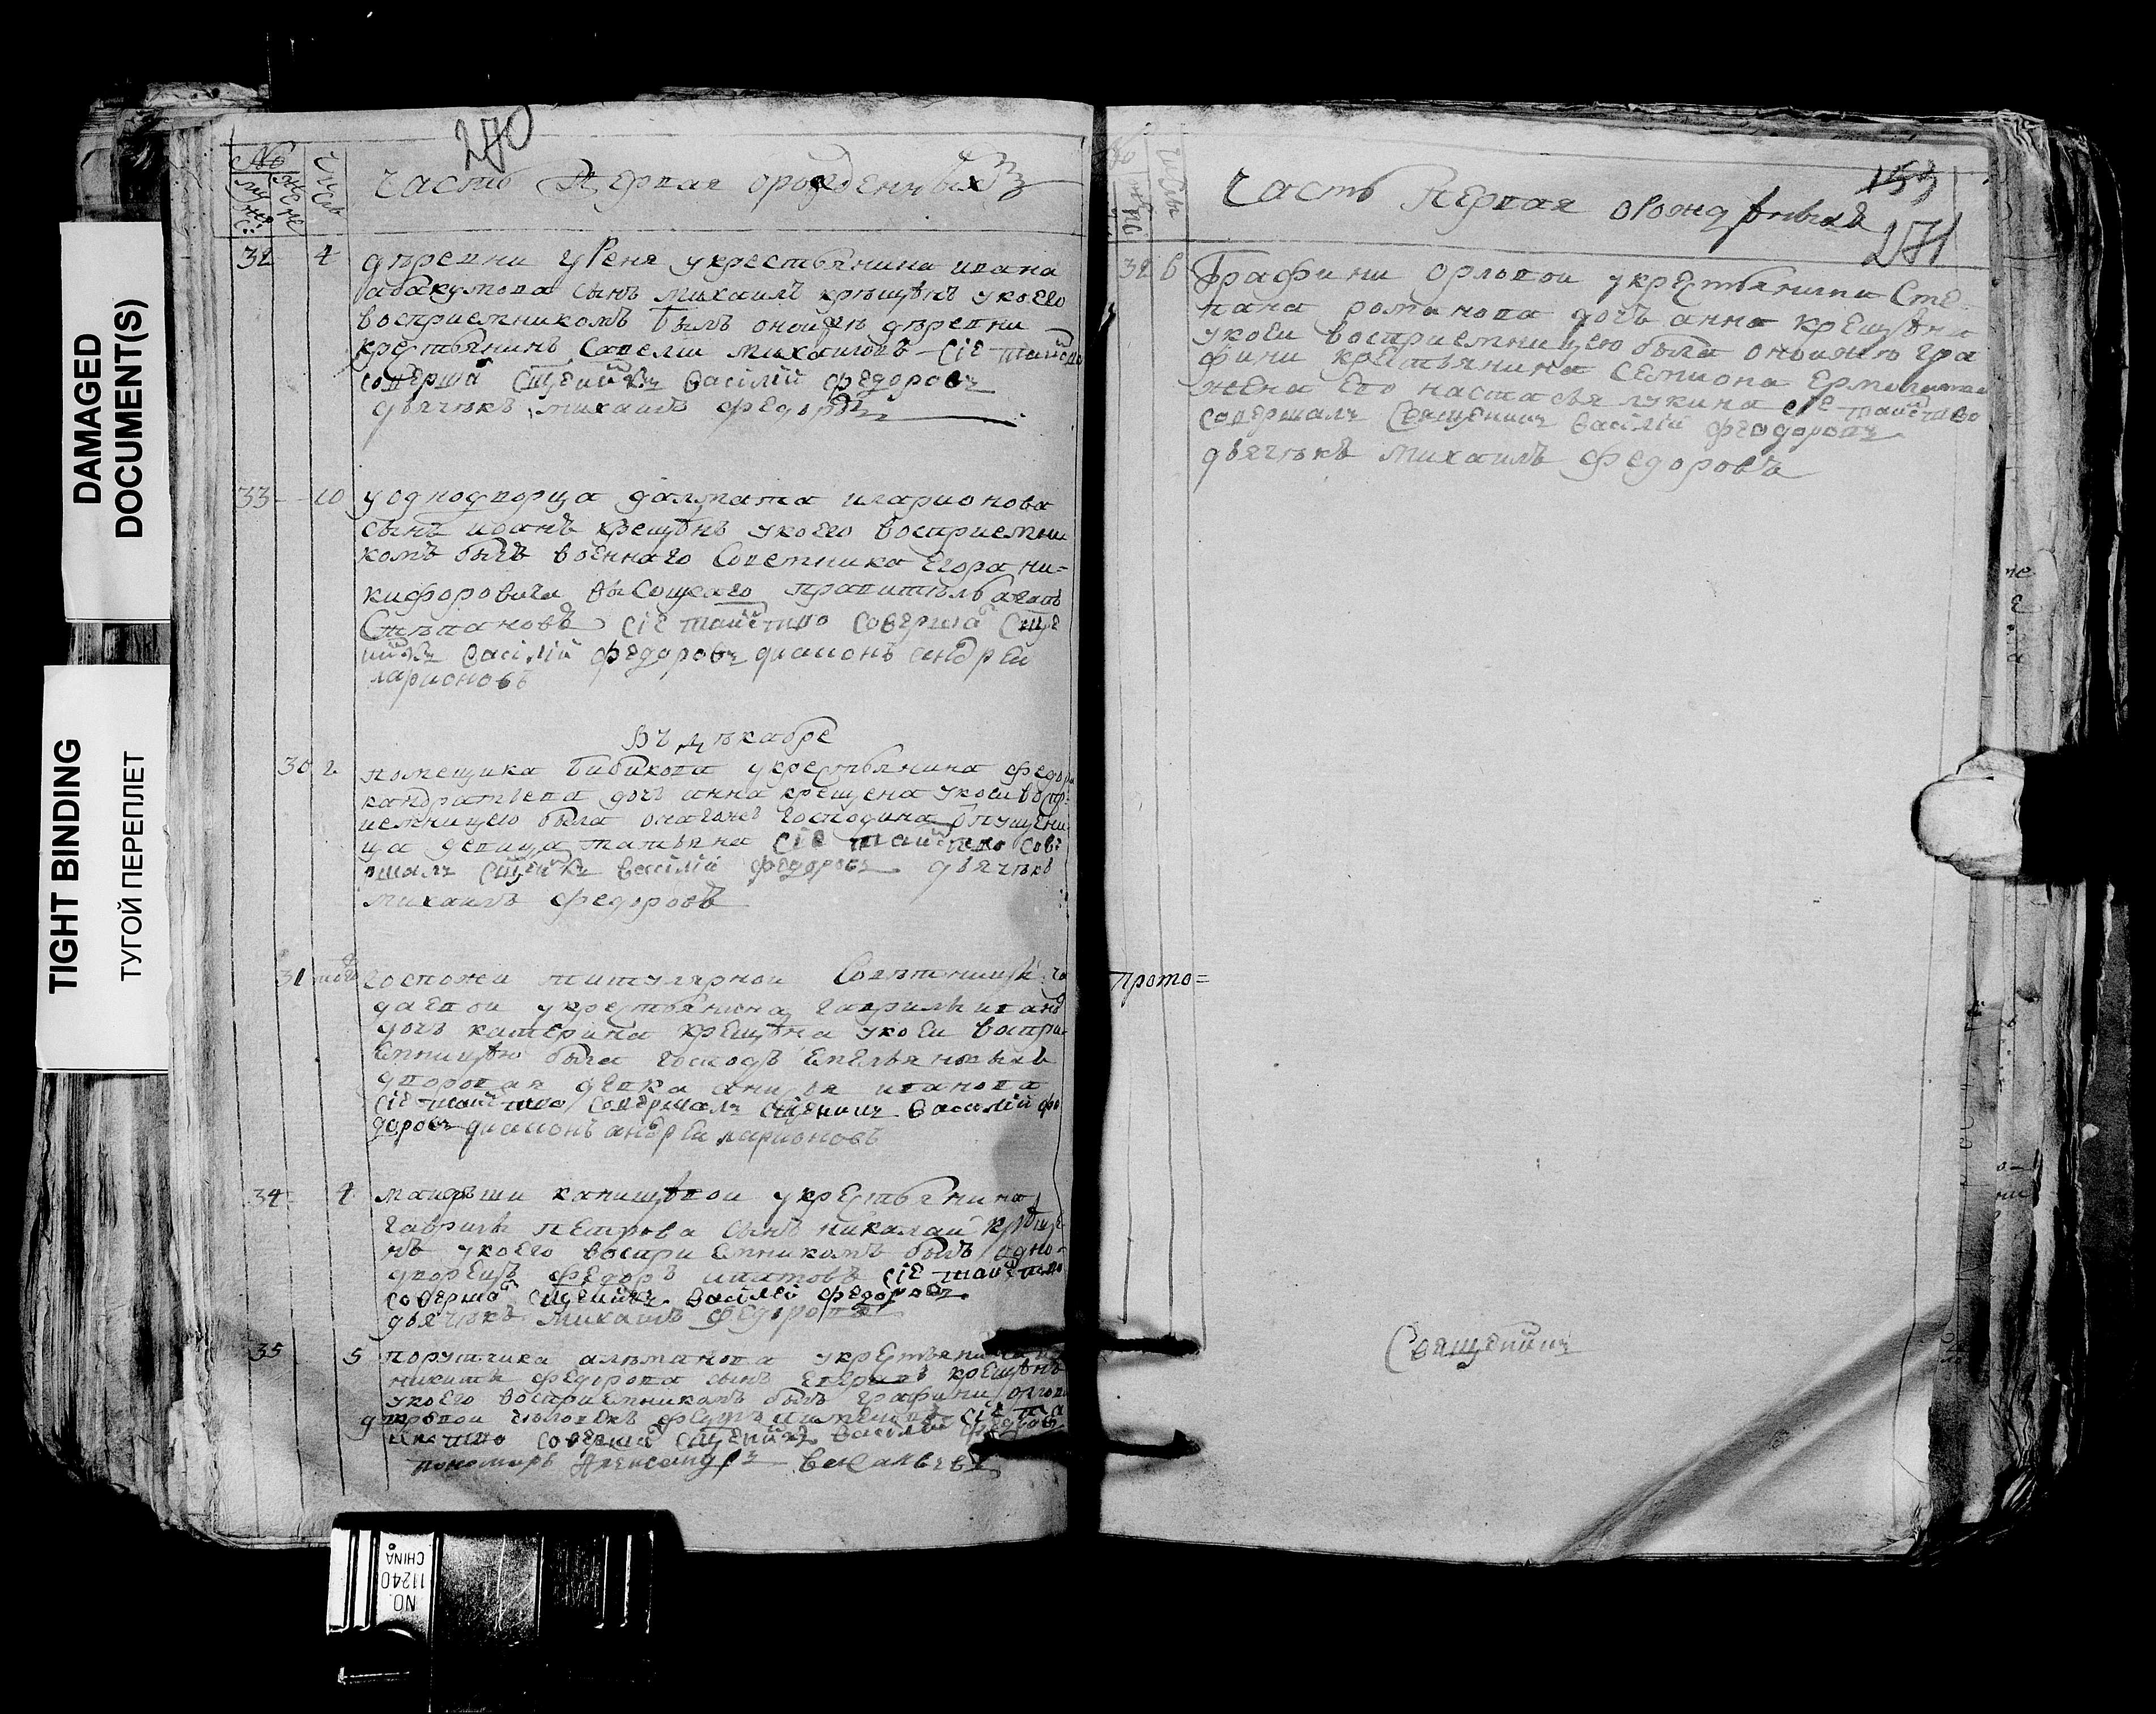 DAMAGED
DOCUMENT(S)
TIGHT BINDING
ТУГОЙ ПЕРЕПЛЕТ
270
№ Число
муже: жене
Часть Первая орожденныхъ
32 4 дѣревни у крестьянина ивана
абакумова сынъ михаилъ крещѣнъ укоего
восприемникомъ былъ оной дѣревни
крестьянинъ савелiи михаиловъ сiе таинство
соверша Сщеникъ Василiй Федоровъ
дьячѣкъ михаилъ федоровъ
33 10 уоднодворца далмата иларионова
сынъ иванъ крещѣнъ укоего восприемни
комъ былъ военнаго Советника Егора ни=
кифоровича высоцкаго
Стѣпановъ сiе таинство соверша Сще
никъ Василiй федоровъ диаконъ андрей
ларионовъ
Въ дѣкабре
30 2 помещика бибикова укрестьянина федора
кандратьева дочъ анна крещена укоеи воспр
иемницею была онагоже господина
девица татьяна сiе таинство сове
ршалъ Сщеникъ Василiй федоровъ дьячѣкъ
михаилъ федоровъ
31 госпожи титулярнои Совѣтницы
укрестьянина гаврилы иван
дочъ катерина крещѣна укоеи воспри
емницѣю была господъ
дворовая девка анисья иванова
сiе таинство совершалъ сщеникъ Василiй фе
доровъ диаконъ андреи ларионовъ
34 4 маиорши канищѣвои укрестьянина
гаврилы петрова сынъ николаи крѣще
нъ укоего восприемникомъ былъ одно=
дворецъ федоръ ипатовъ сiе таинство
соверша сщеникъ Василiй федоровъ
дьячѣкъ михаилъ федоровъ
35 5 поручика укрестьянина
никиты федорова сынъ крещѣнъ
укоего восприемникомъ былъ графини орлово
сiе та
инство соверша сщеникъ Василiй федоровъ
пономарь Александръ
153
271
Часть Первая орожденныхъ
32 6 Графини орловои укрестьянина Сте=
пана романова дочь анна крещѣна
укоеи восприемницею была оноиже гра
фини крестьянина семиона
жена его настасья лукина сiе таинство
совершалъ Священникъ Василiй феодоровъ
дьячѣкъ михаилъ федоровъ
прото=
Священникъ
NO.
11240
CHINA